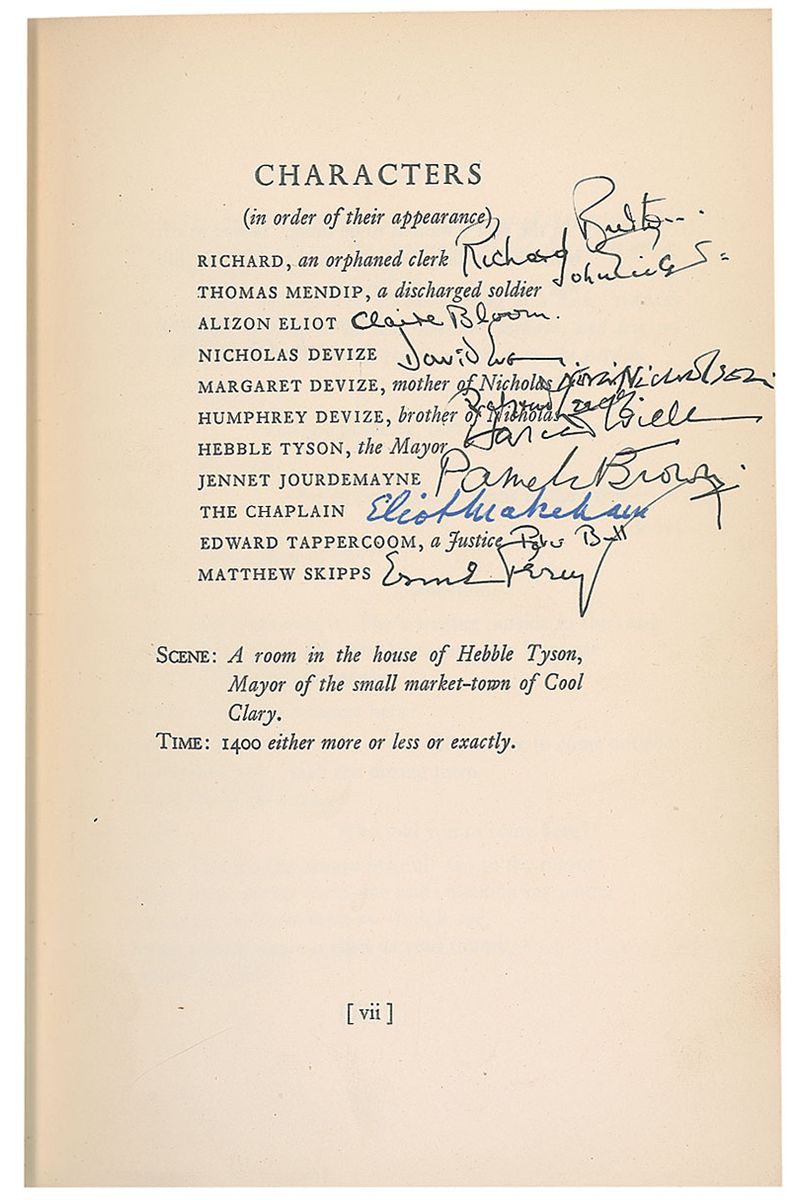 CHARACTERS
(in order of their appearance)
RICHARD, an orphaned clerk Richard Burton
THOMAS MENDIP, a discharged soldier John Gielgud
ALIZON ELIOT Claire Bloom.
NICHOLAS DEVIZE David
MARGARET DEVIZE, mother of Nicholas Nora Nicholson
HUMPHREY DEVIZE, brother of Nicholas Richard Leech
HEBBLE TYSON, the Mayor
JENNET JOURDEMAYNE Pamela Brown
THE CHAPLAIN Eliot Makeham
EDWARD TAPPERCOOM, a Justice Peter Bull
MATTHEW SKIPPS Esme Percy
SCENE: A room in the house of Hebble Tyson,
Mayor of the small market-town of Cool
Clary.
TIME: 1400 either more or less or exactly.
[ vii ]